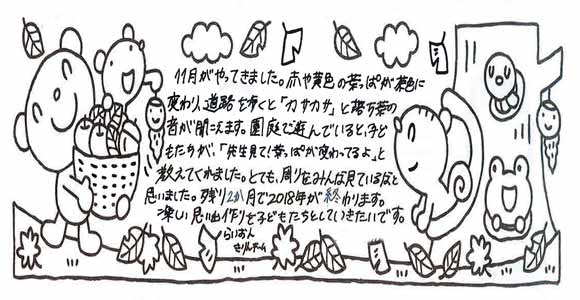 11月がやってきました。赤や黄色の葉っぱが茶色に
変わり、道路を歩くと「カサカサ」と落ち葉の
音が聞こえます。園庭で遊んでいると、子ど
もたちが、「先生見て!葉っぱが変わってるよ」と
教えてくれました。とても、周りをみんな見ているなと
思いました。残り2か月で2018年が終わります。
楽しい思い出作りを子どもたちとしていきたいです。
らいおん
きりんチーム